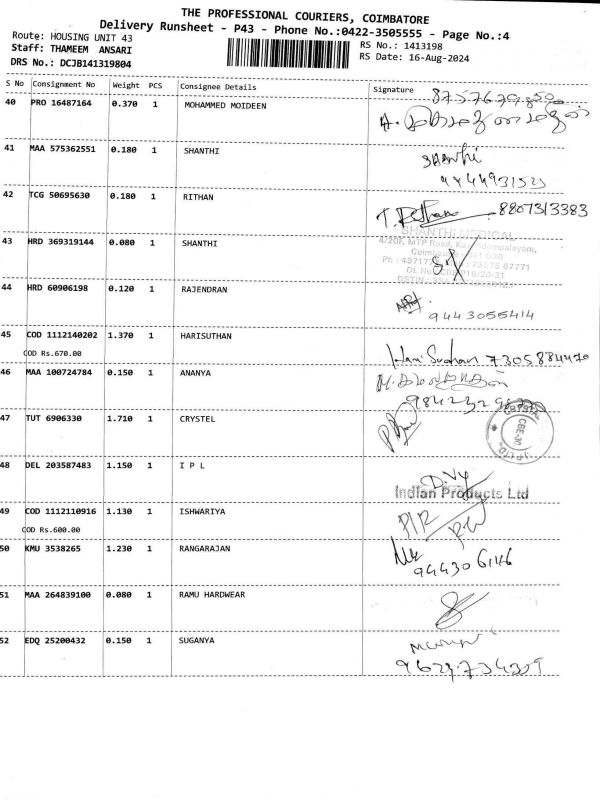 THE PROFESSIONAL COURIERS, COIMBATORE
Delivery Runsheet - P43 - Phone No.:0422-3505555 - Page No.:4
Route: HOUSING UNIT 43
RS No.: 1413198
Staff: THAMEEM ANSARI
RS Date: 16-Aug-2024
DRS No.: DCJB141319804
S No Consignment No Weight PCS Consignee Details Signature
40 PRO 16487164 0.370 1 MOHAMMED MOIDEEN
41 MAA 575362551 0.180 1 SHANTHI Shanthi
42 TCG 50695630 0.180 1 RITHAN 8807313383
43 HRD 369319144 0.080 1 SHANTHI
SHANTHI MEDICAL
44 HRD 60906198 0.120 1 RAJENDRAN
9443055414
45 COD 1112140202 1.370 1 HARISUTHAN
COD Rs.670.00
Hari Sudhan 7305884470
46 MAA 100724784 0.150 1 ANANYA
47 TUT 6906330 1.710 1 CRYSTEL
48 DEL 203587483 1.150 1 I P L
Indian Products Ltd
49 COD 1112110916 1.130 1 ISHWARIYA
COD Rs.600.00
50 KMU 3538265 1.230 1 RANGARAJAN
51 MAA 264839100 0.080 1 RAMU HARDWEAR
52 EDQ 25200432 0.150 1 SUGANYA